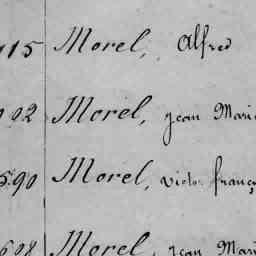 115 Morel, Alfred
02 Morel, jean Mari
590 Morel, victor franç
608 Morel, jean Mari